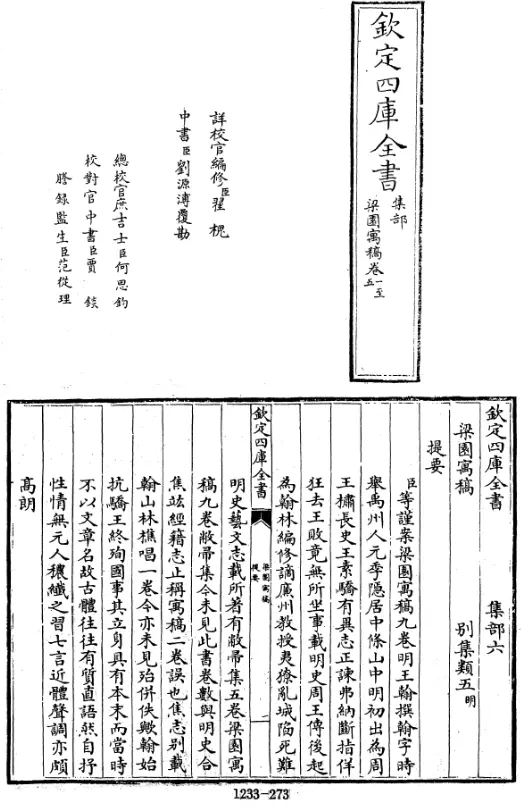 欽定四庫全書
集部
梁園寓稿卷一至五
詳校官編修臣翟槐
中書臣劉源溥覆勘
總校官庶吉士臣何思鈞
校對官中書臣賈錟
謄錄監生臣范從理
欽定四庫全書 集部六
梁園寓稿 別集類五明
提要
臣等謹案梁園寓稿九卷明王翰撰翰字時
舉禹州人元季隱居中條山中明初出為周
王橚長史王素驕有異志正諫弗納斷指佯
狂去王敗竟無所坐事載明史周王傳後起
為翰林編修謫廉州教授夷獠亂城陷死難
欽定四庫全書
梁園寓稿
提要
一
明史藝文志載所著有敝帚集五卷梁園寓
稿九卷敝帚集今未見此書卷數與明史合
焦竑經籍志止稱寓稿二卷誤也焦志别載
翰山林樵唱一卷今亦未見殆併佚歟翰始
抗驕王終殉國事其立身具有本末而當時
不以文章名故古體往往有質直語然自抒
性情無元人穠纖之習七言近體聲調亦頗
高朗
1233-273